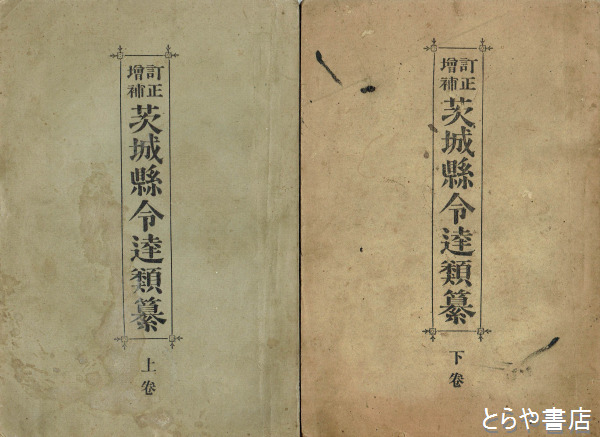 訂正
增補
茨城縣令達類纂
上卷
訂正
增補
茨城縣令達類纂
下卷
とらや書店